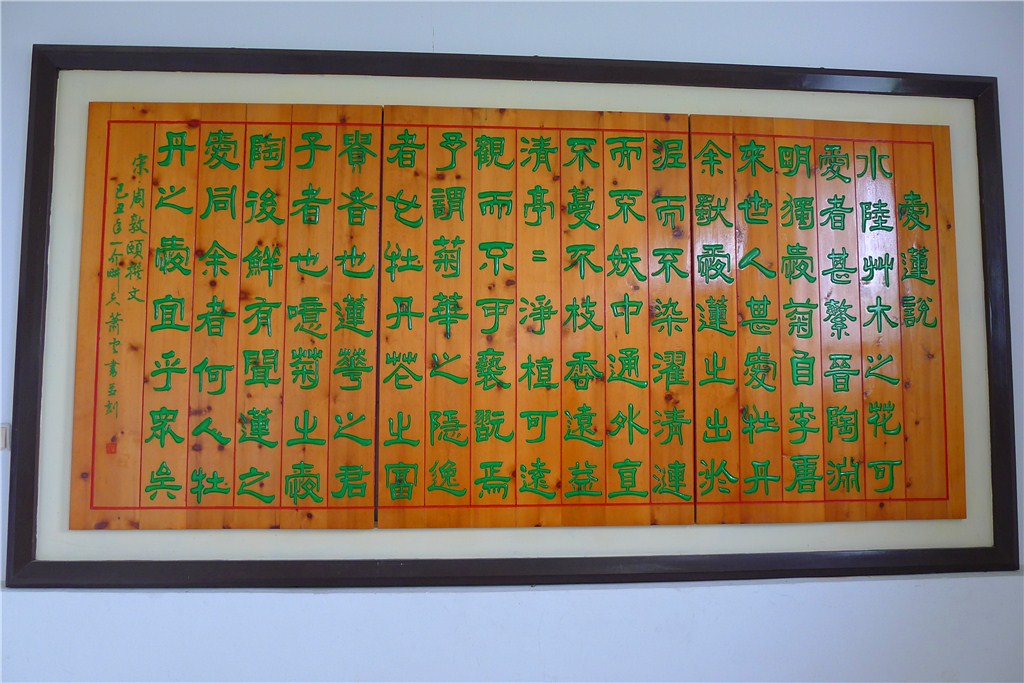 愛蓮說
水陸艸木之花可
愛者甚繁晉陶淵
明獨愛菊自李唐
來世人甚愛牡丹
余獨愛蓮之出於
泥而不染濯清漣
而不妖中通外直
不蔓不枝香遠益
清亭二淨植可遠
觀而不可褻翫焉
予謂菊華之隱逸
者也牡丹花之富
貴者也蓮華之君
子者也噫菊之愛
陶後鮮有聞蓮之
愛同余者何人牡
丹之愛宜乎眾矣
宋周敦頤撰文
己丑年一介畊夫蕭雲書並刻